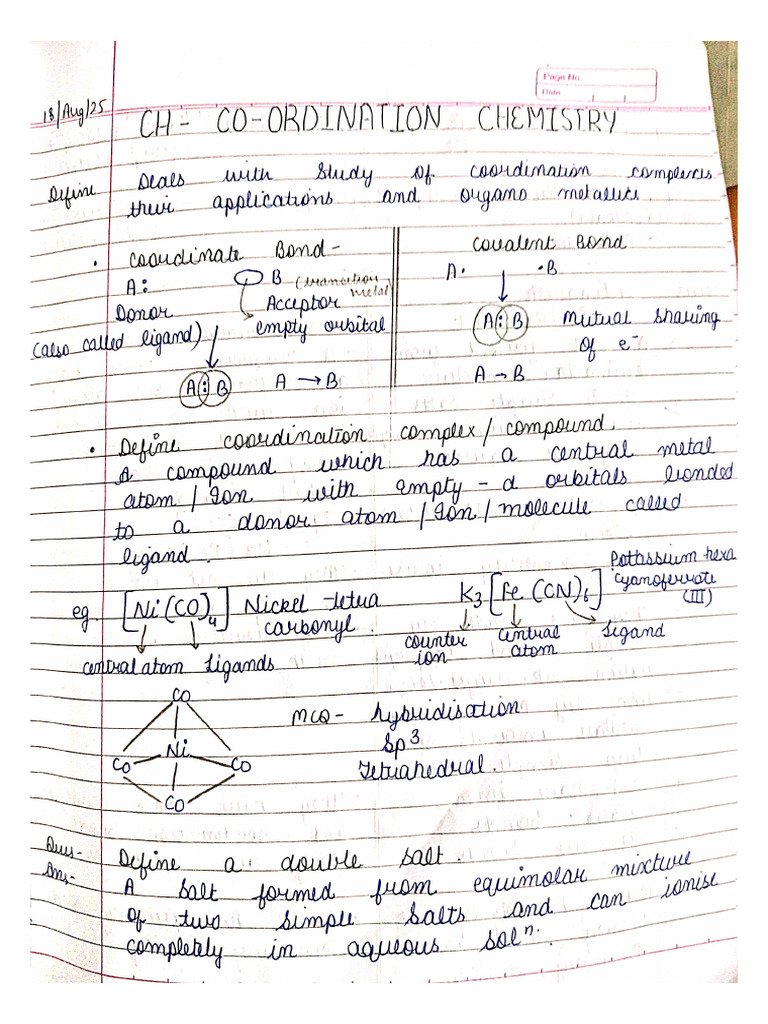 Page No.
Date
18/Aug/25
CH - CO-ORDINATION CHEMISTRY
Define Deals with study of coordination complexes
their applications and organo metallics.
• Coordinate Bond -
A: B (transition metal)
Donor Acceptor
(also called ligand) empty orbital
A : B A → B
Covalent Bond
A• •B
A : B Mutual sharing
of e⁻
A → B
• Define coordination complex / compound.
A compound which has a central metal
atom / Ion with empty - d orbitals bonded
to a donor atom / Ion / molecule called
ligand.
eg. [Ni(CO)₄] Nickel tetra
carbonyl.
central atom ligands
K₃[Fe(CN)₆] Potassium hexa
cyanoferrate
(III)
counter ion central atom ligand
CO
Ni
CO CO
CO
MCQ - hybridisation
Sp³
Tetrahedral.
Ques - Define a double salt.
Ans - A salt formed from equimolar mixture
of two simple salts and can ionise
completely in aqueous solⁿ.